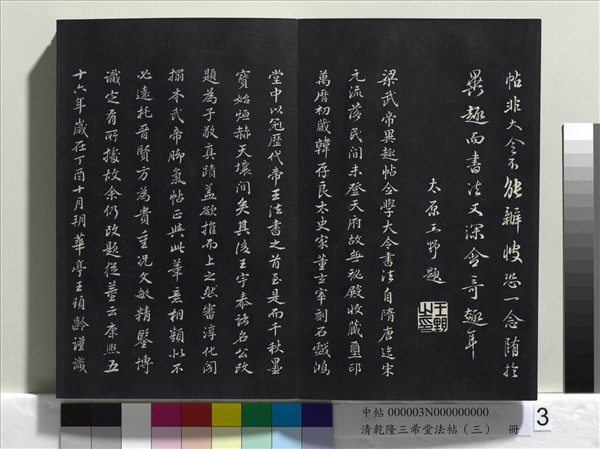 帖非大令不能辦彼恐一念隨於
異趣而書法又深會奇趣耳
太原王野題
王野之印
梁武帝異趣帖全學大令書法自隋唐迄宋
元流落民間未登天府故無祕殿收藏璽印
萬曆初藏韓存良太史家董玄宰刻石戲鴻
堂中以冠歷代帝王法書之首至是而千秋墨
寶始烜赫天壤間矣其後王宇泰諸名公改
題為子敬真蹟蓋欲推而上之然審淳化閣
搨本武帝腳氣帖正與此筆意相類似不
必遠托晉賢方為貴重況文敏精鑒博
識定有所據故余仍改題從董云康熙五
十六年歲在丁酉十月朔華亭王頊齡謹識
中帖 000003N000000000
清乾隆三希堂法帖（三） 冊
3